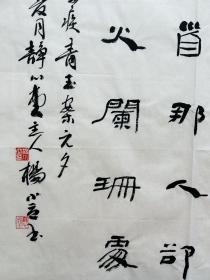 首那人卻
火闌珊處
疾青玉案元夕
月靜心主人楊書